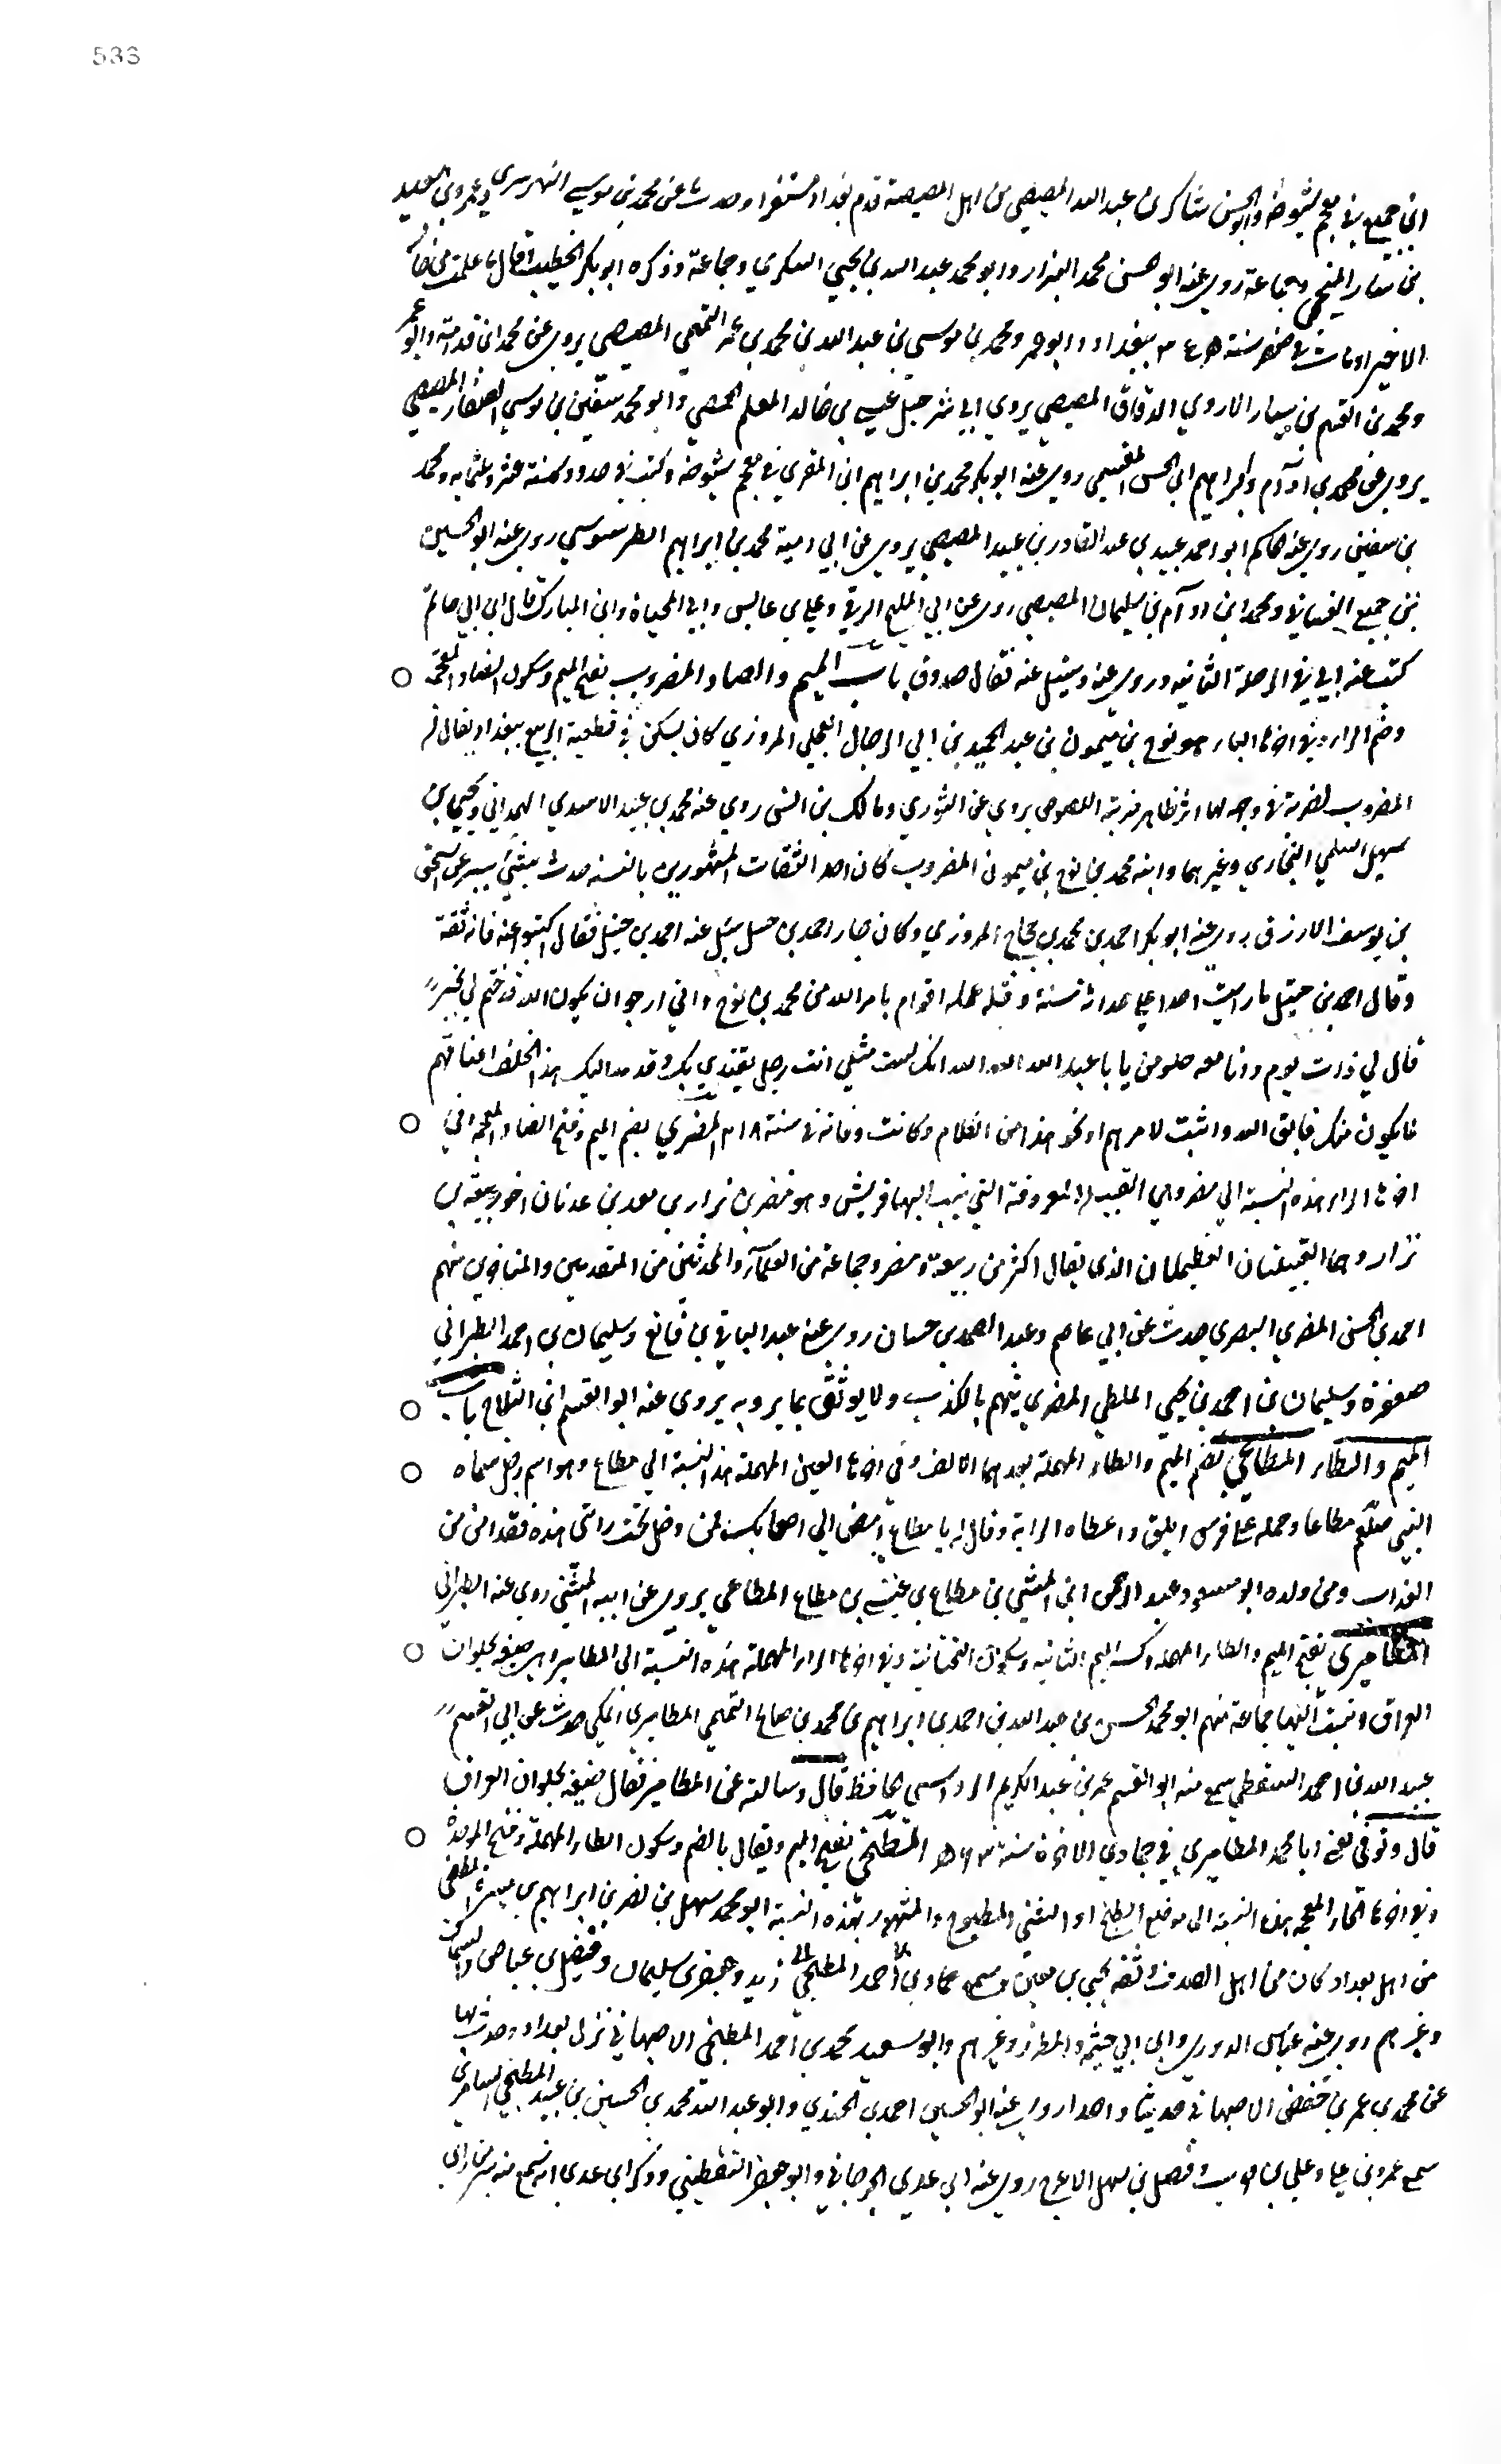 533
ابن جميع في معجم شيوخه وابو الحسن شاكر بن عبد الله المصيصي من اهل المصيصة قدم بغداد مستنفرا وحدث عن محمد بن موسي النهرسري وعمر بن سعيد
بن سنان المنبجي وجماعة روى عنه ابو الحسن محمد البزار وابو محمد عبد الله بن يحيي السكري وجماعة وذكره ابو بكر الخطيب قال ما علمت من حاله
الا خيرا ومات في صفر سنة ببغداد وابو عمرو محمد بن موسي بن عبد الله بن محمد بن التميمي المصيصي يروى عن محمد ابن قدامة وابو عمر
ومحمد بن القسم بن سيار الازدي الدقاق المصيصي يروي ابي شرحبيل عيسي بن خالد المعلم الحمصي وابو محمد سفين بن موسي الصفار المصيصي
يروى عن محمد بن ادم وابراهيم ابي الحسن المقسمي روى عنه ابو بكر محمد بن ابراهيم ابن المقري في معجم شيوخه وكتب في حدود سنة عشر وثلثمايه ومحمد
بن سفين روى عنه حاكم ابو احمد عبيد بن عبد القادر بن عبيد المصيصي يروى عن ابي امية محمد بن ابراهيم الطرسوسي روى عنه ابو الحسين
بن جميع الغساني ومحمد ابن ادم بن سليمان المصيصي روى عن ابي المليح الرقي وعلي بن عابس وابي المحياة وابن المبارك قال ابن ابي حاتم
كتب عنه ابي في الرحلة الثانيه وروى عنه وسئل عنه فقال صدوق باب الميم والضاد المضروب بفتح الميم وسكون الضاد المعجمة
وضم الراء وفي اخرها الباء هو نوح بن ميمون بن عبد الحميد بن ابي الرجال العجلي المروزي كان يسكن في قطيعة الربيع ببغداد يقال له
المضروب لضربة في وجهه لها اثر ظاهر ضربته اللصوص يروي عن الثوري ومالك بن انس روي عنه محمد بن عبيد الاسدي الهمداني ويحيي بن
سهيل السلمي البخاري وغيرهما وابنه محمد بن نوح بن ميمون المضروب كان احد الثقات المشهورين بالسنه حدث بشيء يسير عن اسحق
بن يوسف الازرق روى عنه ابو بكر احمد بن محمد بن حجاج المروزي وكان جار احمد بن حنبل سئل عنه احمد بن حنبل فقال اكتبوا عنه فانه ثقة
وقال احمد بن حنبل ما رايت احدا علي حداثة سنه وقلة علمه اقوام بامر الله من محمد بن نوح واني ارجو ان يكون الله قد ختم له بخير
قال لي ذات يوم وانا معه خلوين يا با عبد الله الله الله انك لست مثلي انت رجل يقتدي بك وقد مد اليك هذا الخلق اعناقهم
لما يكون منك فاتق الله واثبت لامره او نحو هذا من الكلام وكانت وفاته في سنة ٢١٨ المضري بضم الميم وفتح الضاد المعجمه وفي
اخرها الراء هذه النسبة الي مضر وهي القبيلة المعروفة التي ينسب اليها قريش وهو مضر بن نزار بن معد بن عدنان اخو ربيعه بن
نزار وهما القبيلتان العظيمتان الذي يقال اكثر من ربيعة ومضر وجماعة من العلماء والمحدثين من المتقدمين والمتاخرين منهم
احمد بن الحسن المضري البصري حدث عن ابي عاصم وعبد الصمد بن حسان روى عنه عبد الباقي بن قانع وسليمان بن احمد الطبراني
صعفرة وسليمان بن احمد بن يحيي الملطي المضري يتهم بالكذب ولا يوثق بما يرويه يروي عنه ابو القسم ابن الثلاج باب
الميم والطاء المطاعي بضم الميم والطاء المهملة بعدهما الالف وفي اخرها العين المهملة هذه النسبة الي مطاع وهو اسم رجل سماه
النبي صلعم مطاعا وحمله علي فرس ابلق واعطاه الراية وقال له يا مطاع امض الي اصحابك فمن دخل تحت رايتي هذه فقد امن من
العذاب ومن ولده ابو مسعود عبد الرحمن ابن المثني بن مطاع بن عيسي بن مطاع المطاعي يروى عن ابيه المثني روي عنه الطبراني
المطاميري بفتح الميم والطاء المهمله وكسر الميم الثانيه وسكون التحتانية وفي اخرها الراء المهملة هذه النسبة الي المطامير وهي ضيعه بحلوان
العراق ونسبت اليها جماعة منهم ابو محمد الحسن بن عبد الله بن احمد بن ابراهيم بن محمد بن صالح التميمي المطاميري المكي حدث عن ابي القسم
عبيد الله بن احمد السقطي سمع منه ابو القسم عمر بن عبد الكريم الرواسي الحافظ قال وسالته عن المطامير فقال ضيعه بحلوان العراق
قال وتوفي يعني ابا محمد المطاميري في جمادي الاخرة سنة المطبخي بفتح الميم ويقال بالضم وسكون الطاء المهملة وفتح الموحدة
وفي اخرها الخاء المعجمه هذه النسبة الي موضع الطبخ او الشيء المطبوخ والمشهور بهذه النسبة ابو محمد سهل بن نصر بن ابراهيم بن ميسرة المطبخي
من اهل بغداد كان من اهل الصدق وثقه يحيي بن معين وسمع حماد بن زيد وجعفر بن سليمان وفضيل بن عياض وابن السماك
وغيرهم روى عنه عباس الدوري وابن ابي خيثمه والمطرز وغيرهم وابو سعيد محمد بن احمد المطبخي الاصبهاني نزل بغداد وحدث بها
عن محمد بن عمر بن حفص الاصبهاني حديثا واحدا روى عنه ابو الحسين احمد بن الجندي وابو عبد الله محمد بن الحسين بن عبيد المطبخي السامري
سمع عمرو بن علي وعلي بن حرب وفضل بن سهل الاعرج روى عنه ابن عدي الجرجاني وابو جعفر اليقطيني وذكر ابن عدي انه سمع منه بسر من راى